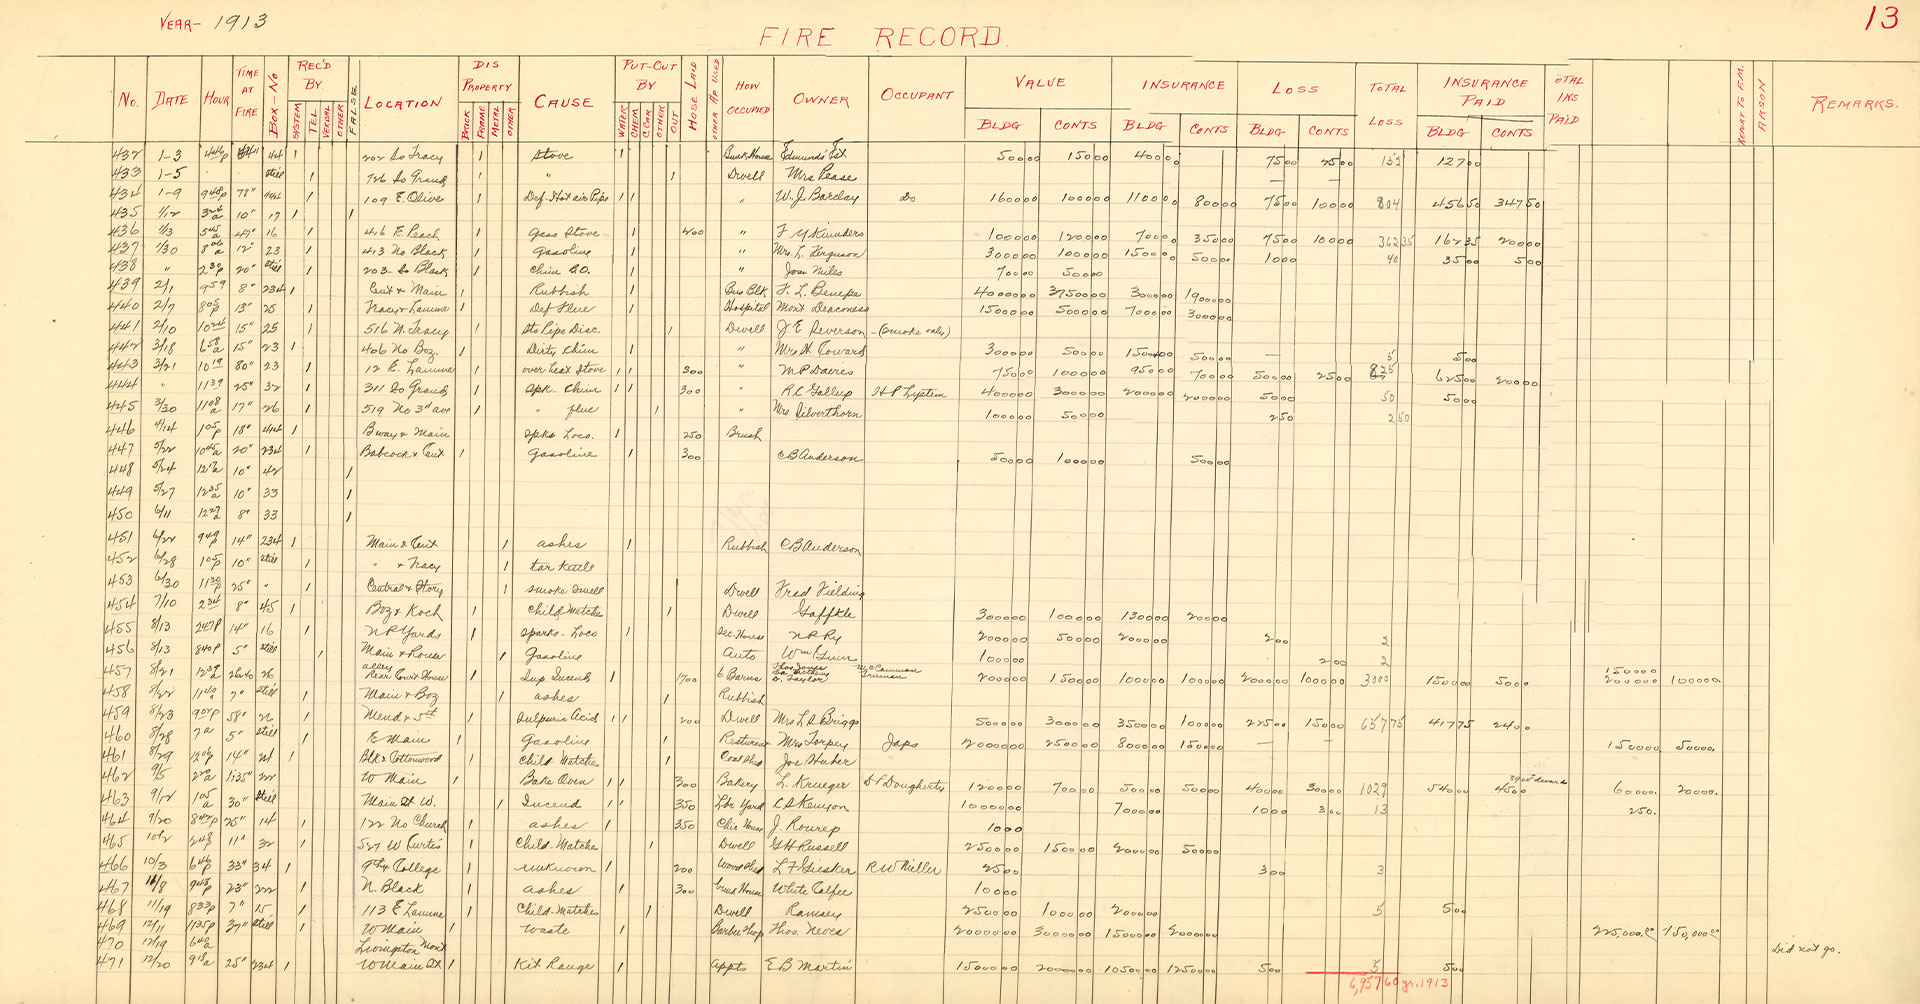 YEAR- 1913
FIRE RECORD.
13
No. DATE HOUR TIME AT FIRE BOX-No REC'D BY SYSTEM TEL VERBAL OTHER FALSE LOCATION DIS PROPERTY BRICK FRAME METAL OTHER CAUSE PUT-OUT BY WATER CHEM G.CAR OTHER OUT HOSE LAID OTHER AP. USED HOW OCCUPIED OWNER OCCUPANT VALUE BLDG CONTS INSURANCE BLDG CONTS LOSS BLDG CONTS TOTAL LOSS INSURANCE PAID BLDG CONTS TOTAL INS PAID REPORT TO F.M. ARSON REMARKS.
432 1-3 446p 44 1 202 So Tracy 1 Stove 1 Edmunds Est 500 00 150 00 400 0 75 00 25 00 152 127 00
433 1-5 Still 1 726 So Grand 1 " 1 Dwell Mrs Pease — —
434 1-9 948p 78" 1 109 E. Olive 1 Def Hot air Pipe 1 1 " W. J. Barclay Do 1600 00 1000 00 1100 00 800 00 75 00 100 00 804 456 50 347 50
435 1/12 324a 10" 17 1 1
436 545a 47" 16 1 416 E. Peach 1 Gaso Stove 1 200 " 1000 00 1200 00 700 00 350 00 75 00 100 00 362 35 162 35 200 00
437 1/30 806a 12" 23 1 413 No Black 1 Gasoline 1 " Mrs. L. Ferguson 3000 00 1000 00 1500 00 500 00 10 00 40 35 00 5 00
438 " 230p 20" Still 1 203 So Black 1 Chim B.O. 1 " Jose Niles 700 00 500 00
439 2/1 959 8" 234 1 Cent & Main 1 Rubbish 1 Bus Blk F. L. Benepe 40000 00 37500 00 3000 00 19000 00
440 2/7 805p 13" 25 1 Tracy & Lamme 1 Def Flue 1 Hospital Mont Deaconess 15000 00 5000 00 7000 00 3000 00
441 2/10 1024 15" 25 1 516 N. Tracy 1 Sto Pipe Disc. 1 Dwell J E Severson - (smoke only)
442 3/18 658a 15" 23 1 406 No Boz. 1 Dirty Chim 1 " Mrs H Coward 3000 00 500 00 1500 00 500 00 — 5 5 00
443 3/21 1019 80" 23 1 12 E. Lamme 1 over heat Stove 1 1 300 " M P Davies 750 00 1000 00 950 00 700 00 500 00 25 00 825 625 00 200 00
444 " 1139 25" 32 1 311 So Grand 1 Spk. Chim 1 300 " R C Gallup H P Lystem 4000 00 3000 00 2000 00 2000 00 50 00 50 50 00
445 3/30 1108a 17" 26 1 519 No 3rd ave 1 " flue 1 " Mrs Silverthorn 1000 00 500 00 2 50 2 50
446 4/14 105p 18" 414 1 Bway & Main Spks Loco. 1 250 Brush
447 5/22 1045a 20" 234 1 Babcock & Cent 1 Gasoline 1 300 C B Anderson 500 00 1000 00 500 00
448 5/24 10" 42 1
449 5/27 1235a 10" 33 1
450 6/11 1227a 8" 33 1
451 6/22 949p 14" 234 1 Main & Cent 1 ashes 1 Rubbish C B Anderson
452 6/28 105p 10" Still 1 " & Tracy 1 tar kettle
453 6/30 1130p 25" " 1 Central & Story 1 smoke smell Dwell Fred Fielding
454 7/10 234 8" 45 1 Boz & Koch 1 Child Matches 1 Dwell Gaffkle 3000 00 1000 00 1300 00 200 00
455 8/13 247p 14" 16 1 N P Yards 1 Sparks - Loco 1 Sec. House N P Ry 2000 00 500 00 2000 00 2 00 2
456 8/13 840p 5" Still 1 Main & Rouse 1 Gasoline Auto Wm Finn 1000 00 2 00 2
457 8/21 1239a 26 1 alley Rear Court House 1 Sup Incend 1 1700 6 Barns Thos Jones D. Taylor W S Cammon Truman 2000 00 1500 00 1000 00 1000 00 2000 00 1000 00 3000 1500 00 50 00 1500 00 2000 00 1000 00
458 8/22 1140a 7" Still 1 Main & Boz 1 ashes 1 Rubbish
459 8/23 902p 58" 26 1 Mend & 5th 1 Sulpuric Acid 1 1 200 Dwell Mrs L D Briggs 5000 00 3000 00 3500 00 1000 00 225 00 150 00 657 75 417 75 240 0
460 8/28 7a 5" Still 1 E Main 1 Gasoline 1 Resturant Mrs Torpey Japs 20000 00 2500 00 8000 00 1500 00 — — 1500 00 500 00
461 8/29 1206p 14" 21 1 Blk & Cottonwood 1 Child Matches 1 Coal Shed Joe Huber
462 9/5 1:35" 22 W Main 1 Bake Oven 1 1 200 Bakery L. Krueger D P Dougherty 1200 00 700 00 500 00 500 00 400 00 300 00 1029 540 00 450 0 600 00 200 00
463 9/12 105a 30" Still 1 Main St W. 1 Incend 1 1 350 Lbr Yard C S Kenyon 10000 00 7000 00 10 00 3 00 13 250.
464 9/20 842p 25" 14 1 122 No Church 1 ashes 1 350 Chic House J. Rourep 10 00
465 10/2 248 11" 32 1 527 W Curtis 1 Child Matches 1 Dwell G H Russell 2500 00 1500 00 2000 00 500 00
466 10/3 646p 33" 34 1 9th & College 1 unknown 1 200 Wood Shed L F Giesker R W Miller 25 00 3 00 3
467 948p 23" 22 1 N. Black 1 ashes 1 300 White Calfee 100 00
468 11/19 833p 7" 15 1 113 E Lamme 1 Child-Matches 1 Dwell Ramsey 2500 00 1000 00 2000 00 5 5 00
469 12/11 1135p 37" Still 1 W Main 1 Waste 1 Barber Shop Thos. Neves 20000 00 30000 00 15000 00 20000 00 225,000.00 150,000.00
470 12/19 640a Livingston Mont Did not go.
471 12/20 918a 25" 234 1 W Main St 1 Kit Range 1 appts E B Martin 15000 00 2000 00 10500 00 1250 00 5 00 5 5 00
6,957 60 yr. 1913